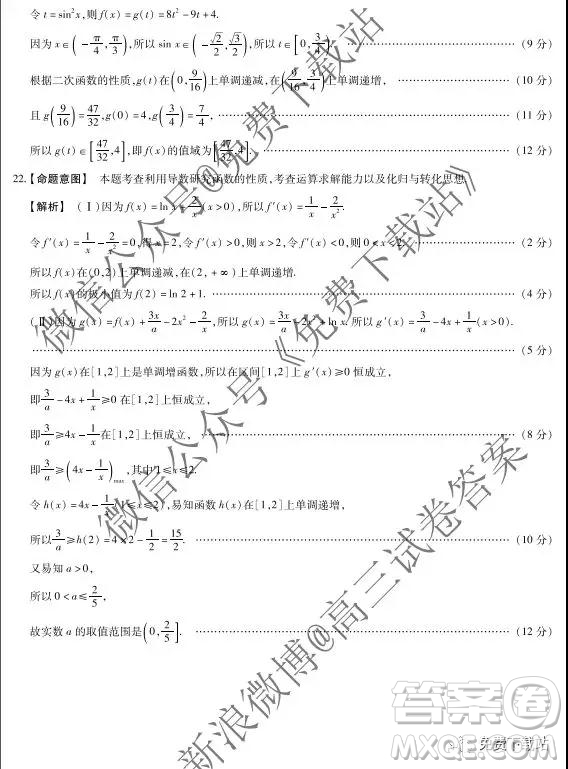 令 t = sin²x, 则 f(x) = g(t) = 8t² - 9t + 4.
因为 x∈(-π/4, π/3), 所以 sin x∈(-√2/2, √3/2), 所以 t∈[0, 3/4). …… (9 分)
根据二次函数的性质, g(t) 在(0, 9/16)上单调递减, 在(9/16, 3/4)上单调递增, …… (10 分)
且 g(9/16) = 47/32, g(0) = 4, g(3/4) = 7/4, …… (11 分)
所以 g(t)∈[47/32, 4], 即 f(x) 的值域为[47/32, 4]. …… (12 分)
22.【命题意图】 本题考查利用导数研究函数的性质, 考查运算求解能力以及化归与转化思想.
【解析】 (Ⅰ)因为 f(x) = ln x + 2/x (x > 0), 所以 f′(x) = 1/x - 2/x².
令 f′(x) = 1/x - 2/x² = 0, 得 x = 2, 令 f′(x) > 0, 则 x > 2, 令 f′(x) < 0, 则 0 < x < 2. …… (2 分)
所以 f(x) 在(0,2)上单调递减, 在(2, +∞)上单调递增.
所以 f(x) 的极小值为 f(2) = ln 2 + 1. …… (4 分)
(Ⅱ)因为 g(x) = f(x) + 3x/a - 2x² - 2/x, 所以 g(x) = 3x/a - 2x² + ln x, 所以 g′(x) = 3/a - 4x + 1/x (x > 0).
…… (5 分)
因为 g(x) 在[1,2]上是单调增函数, 所以在区间[1,2]上 g′(x)≥0 恒成立,
即 3/a - 4x + 1/x ≥ 0 在[1,2]上恒成立,
即 3/a ≥ 4x - 1/x 在[1,2]上恒成立, …… (8 分)
即 3/a ≥ (4x - 1/x)max, 其中 1≤x≤2.
令 h(x) = 4x - 1/x (1≤x≤2), 易知函数 h(x) 在[1,2]上单调递增,
所以 3/a ≥ h(2) = 4×2 - 1/2 = 15/2. …… (10 分)
又易知 a > 0,
所以 0 < a ≤ 2/5,
故实数 a 的取值范围是(0, 2/5]. …… (12 分)
微信公众号@免费下载站
微信公众号《免费下载站》
新浪微博@高三试卷答案
答案圈
MXQE.COM
免费下载站